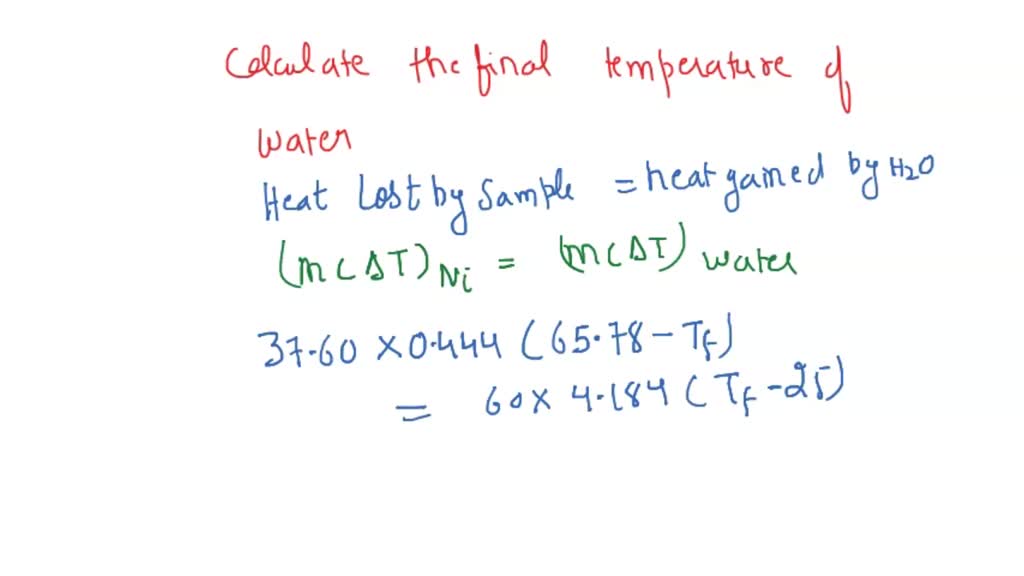 Calculate the final temperature of
water
Heat Lost by Sample = heat gained by H2O
(mCΔT)Ni = (mCΔT) water
37.60 × 0.444 (65.78 - Tf)
= 60 × 4.184 (Tf - 25)